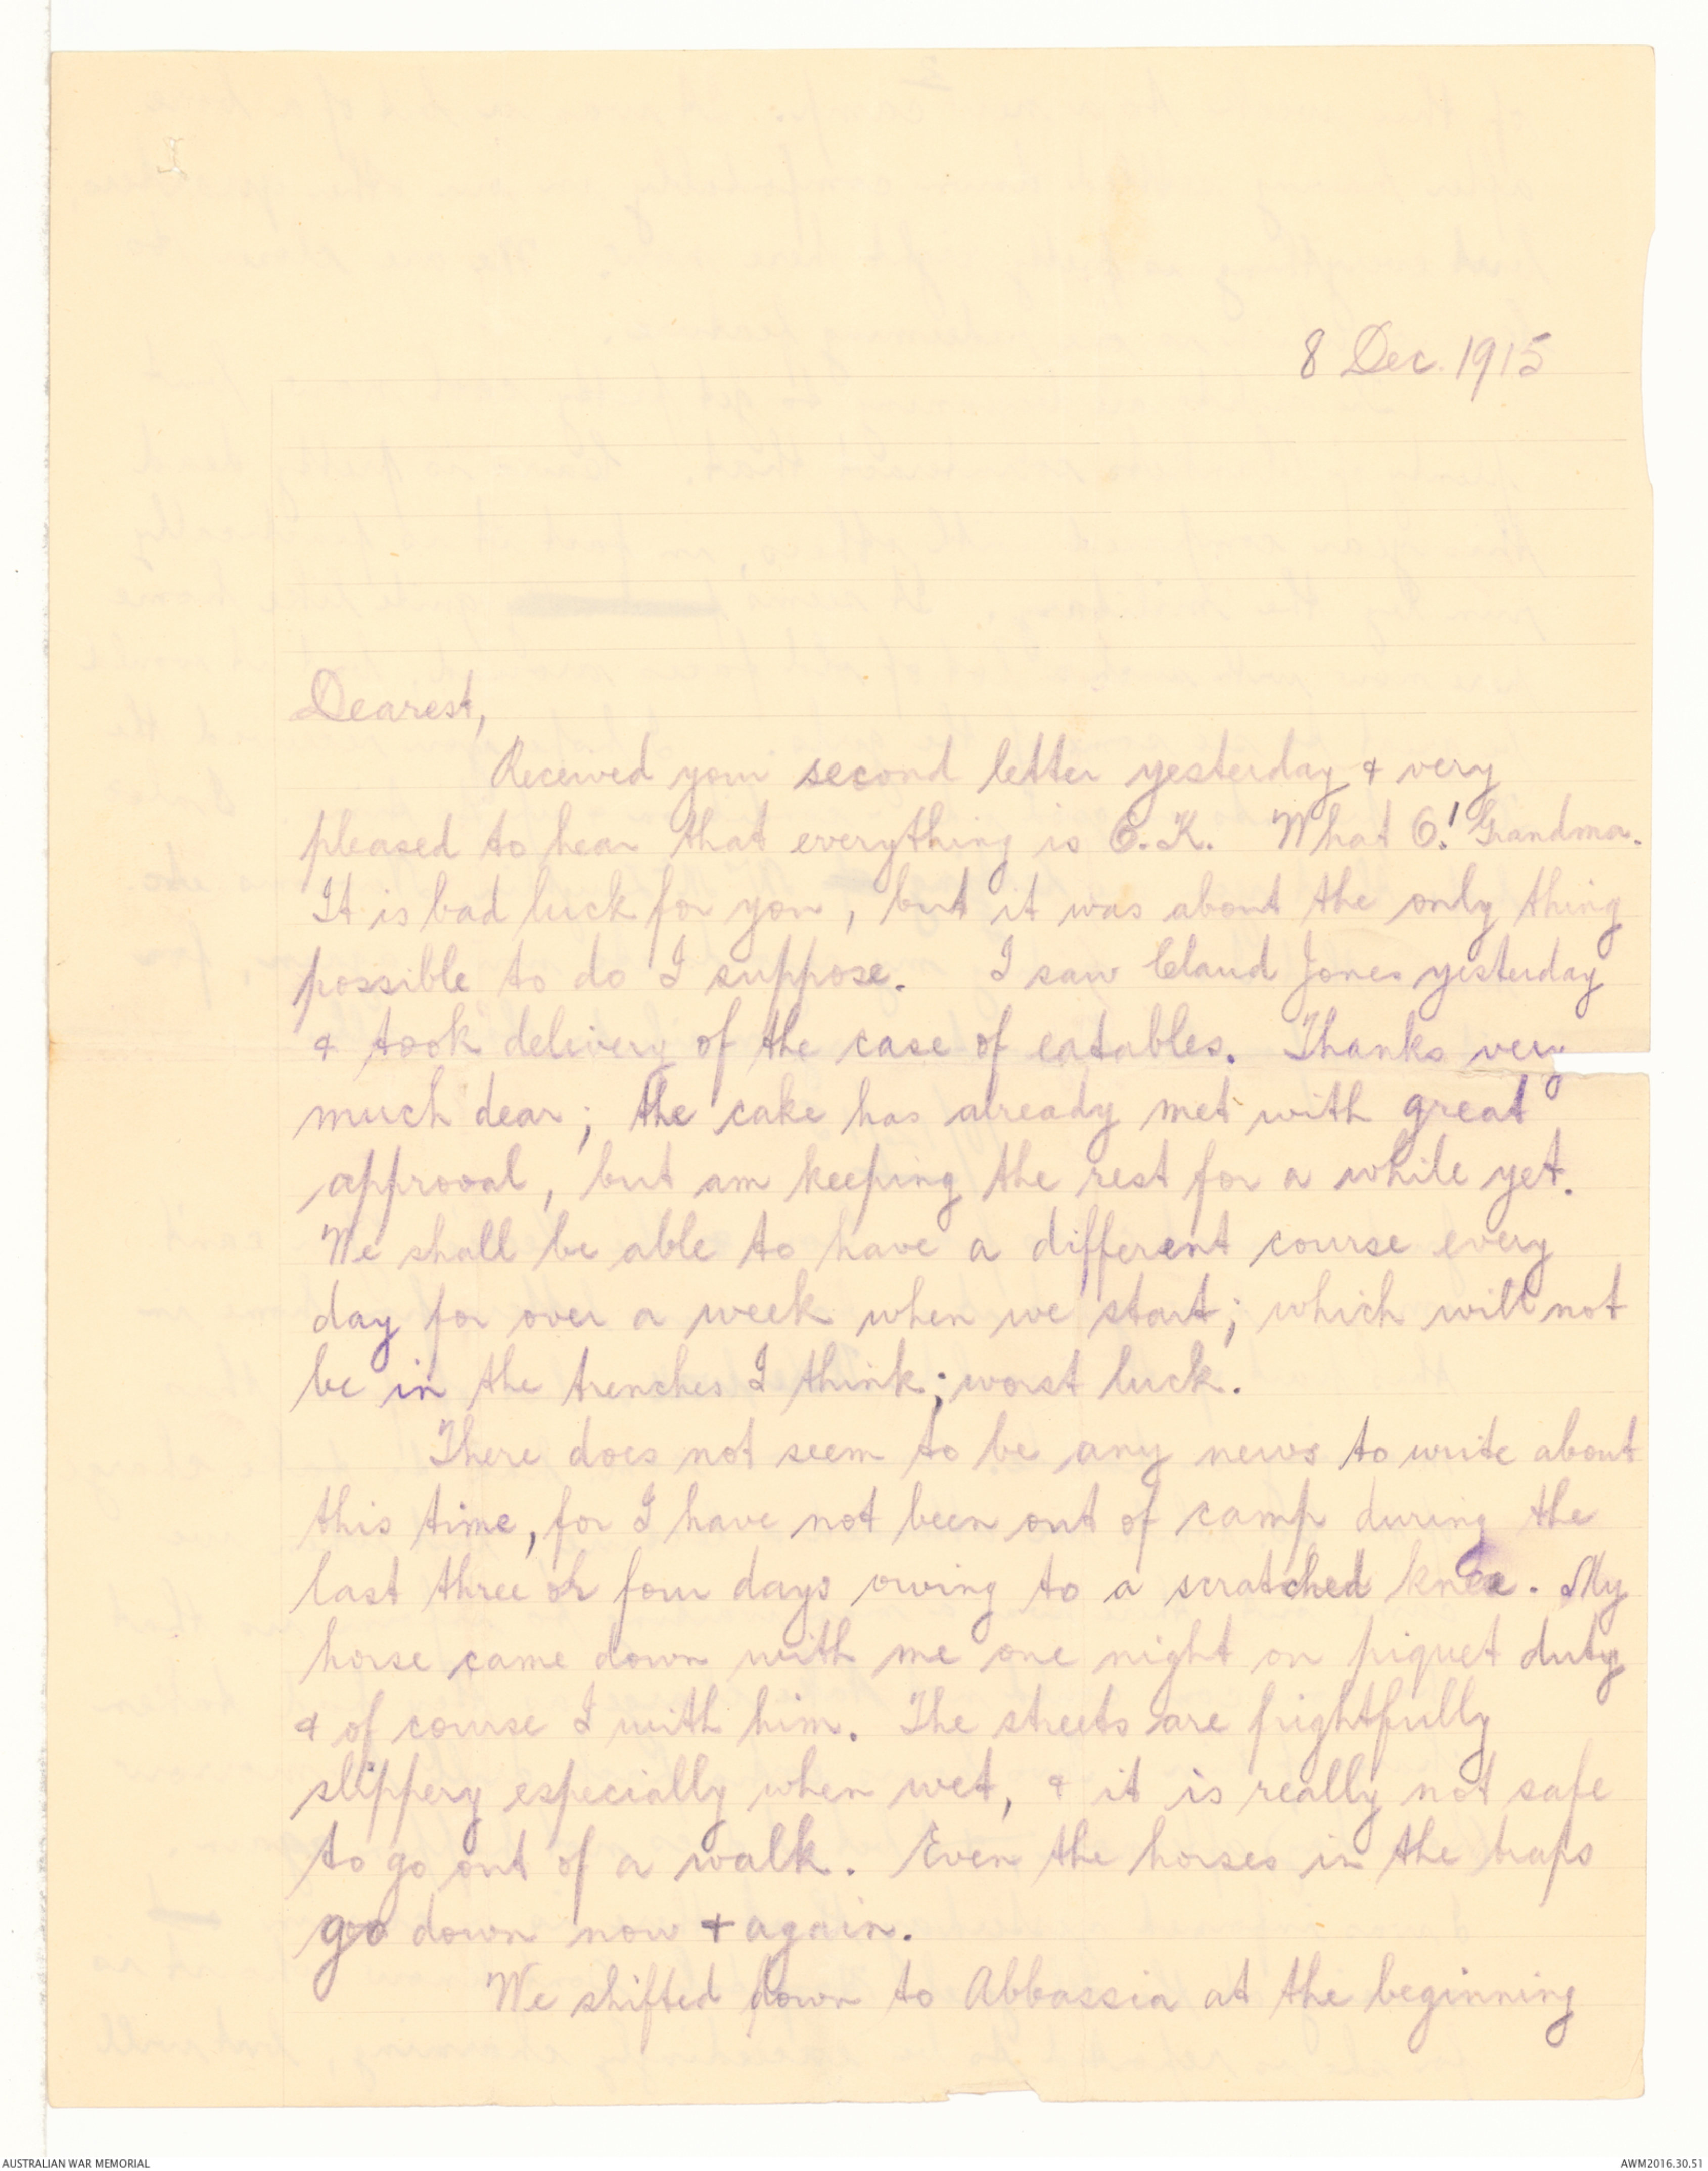 8 Dec. 1915
Dearest,
Received your second letter yesterday & very
pleased to hear that everything is O.K. What O! Grandma.
It is bad luck for you, but it was about the only thing
possible to do I suppose. I saw Claud Jones yesterday
& took delivery of the case of eatables. Thanks very
much dear; the cake has already met with great
approval, but am keeping the rest for a while yet.
We shall be able to have a different course every
day for over a week when we start; which will not
be in the trenches I think; worst luck.
There does not seem to be any news to write about
this time, for I have not been out of camp during the
last three or four days owing to a scratched knee. My
horse came down with me one night on piquet duty
& of course I with him. The streets are frightfully
slippery especially when wet, & it is really not safe
to go out of a walk. Even the horses in the traps
go down now & again.
We shifted down to Abbassia at the beginning
AUSTRALIAN WAR MEMORIAL
AWM2016.30.51